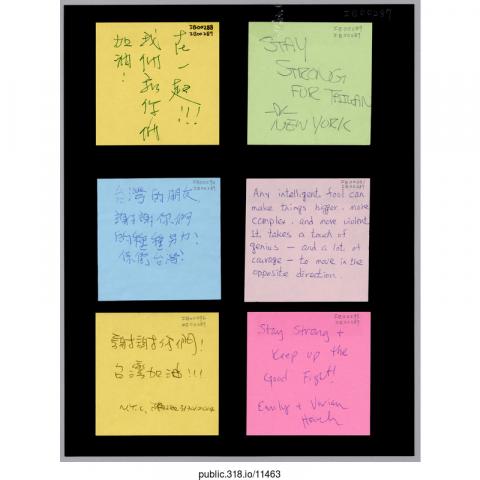 IB00287
IB00288
IB00287
在一起!!!
我們和你們
加油!
IB00287
STAY
STRONG
FOR TAIWAN
NEW YORK
IB00287
台灣的朋友
謝謝你們
的種種努力!
保衛台灣!
IB00287
Any intelligent fool can
make things bigger, more
complex, and more violent.
It takes a touch of
genius — and a lot of
courage — to move in the
opposite direction.
IB00287
謝謝你們!
台灣加油!!!
N.Y.C.
IB00287
Stay Strong +
Keep up the
Good Fight!
Emily + Vivian
public.318.io/11463